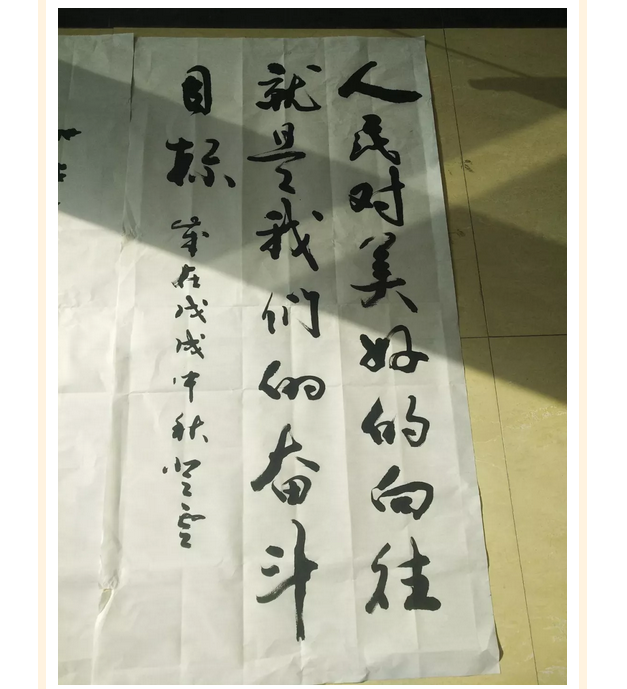 人民对美好的向往
就是我们的奋斗
目标
岁在戊戌中秋